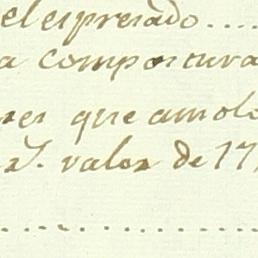 el expresado....
a compostura
que amol
valor de 17